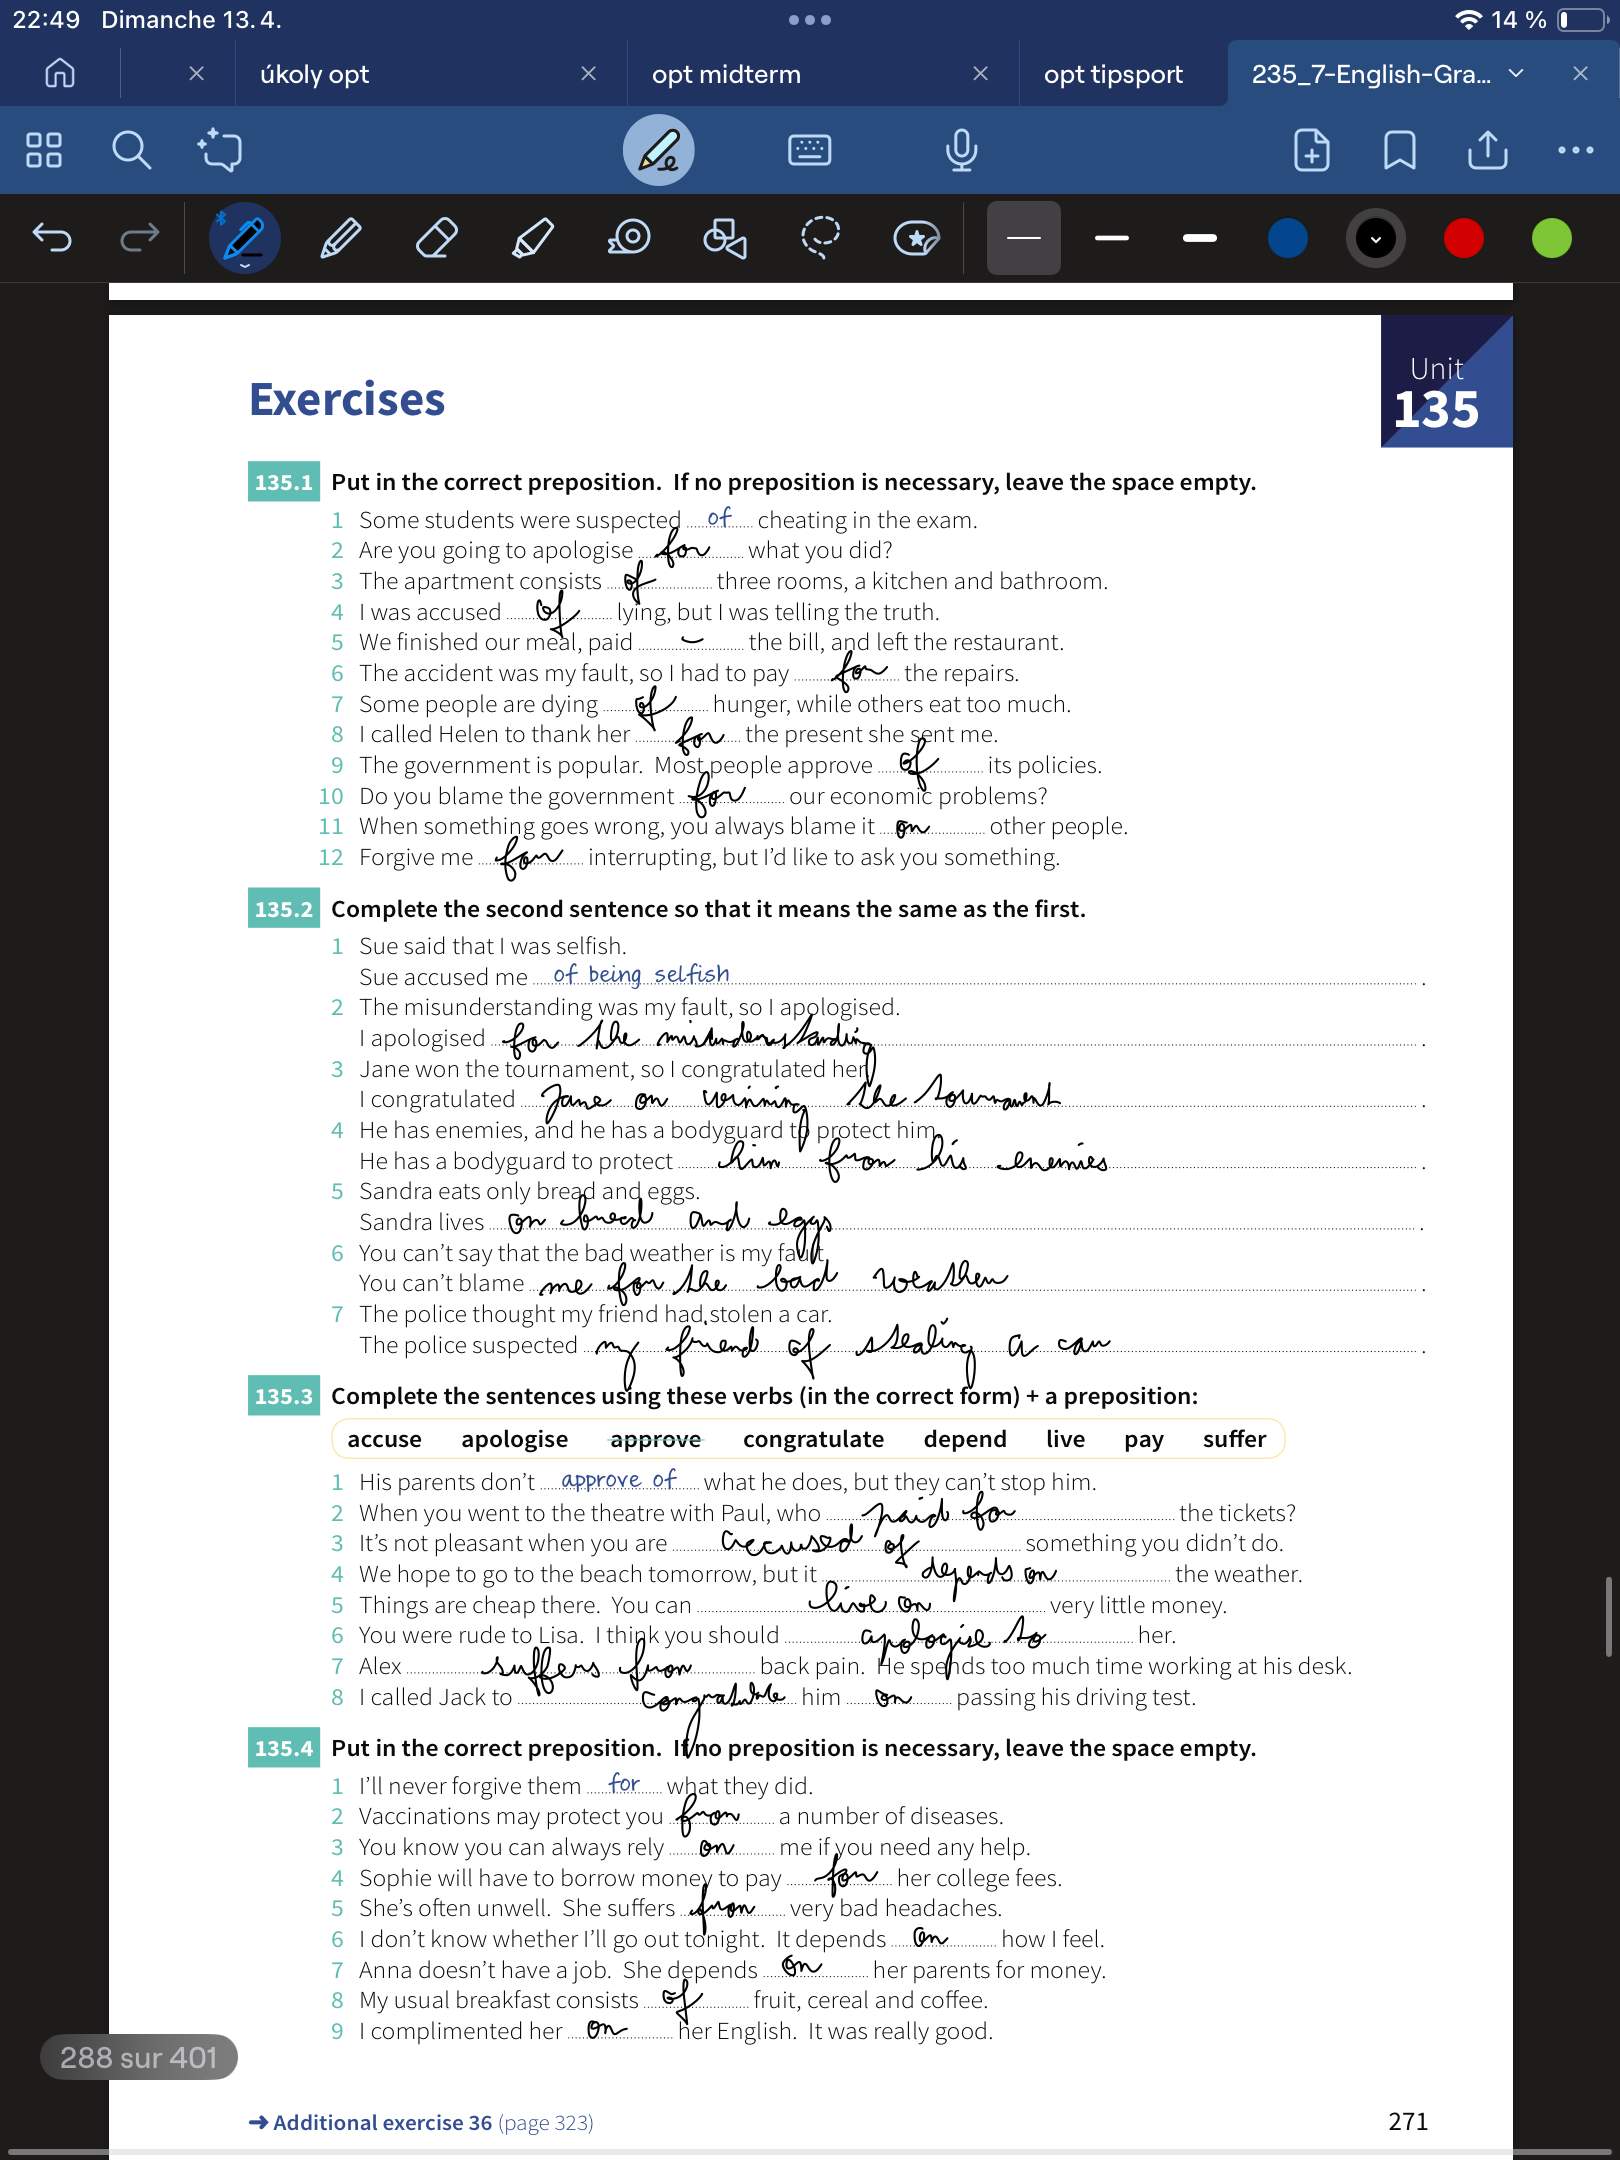 22:49 Dimanche 13. 4.
14 %
úkoly opt
opt midterm
opt tipsport
235_7-English-Gra...
Unit
135
Exercises
135.1 Put in the correct preposition. If no preposition is necessary, leave the space empty.
1 Some students were suspected of cheating in the exam.
2 Are you going to apologise for what you did?
3 The apartment consists of three rooms, a kitchen and bathroom.
4 I was accused of lying, but I was telling the truth.
5 We finished our meal, paid – the bill, and left the restaurant.
6 The accident was my fault, so I had to pay for the repairs.
7 Some people are dying of hunger, while others eat too much.
8 I called Helen to thank her for the present she sent me.
9 The government is popular. Most people approve of its policies.
10 Do you blame the government for our economic problems?
11 When something goes wrong, you always blame it on other people.
12 Forgive me for interrupting, but I'd like to ask you something.
135.2 Complete the second sentence so that it means the same as the first.
1 Sue said that I was selfish.
Sue accused me of being selfish .
2 The misunderstanding was my fault, so I apologised.
I apologised for the misunderstanding .
3 Jane won the tournament, so I congratulated her.
I congratulated Jane on winning the tournament .
4 He has enemies, and he has a bodyguard to protect him.
He has a bodyguard to protect him from his enemies .
5 Sandra eats only bread and eggs.
Sandra lives on bread and eggs .
6 You can't say that the bad weather is my fault.
You can't blame me for the bad weather .
7 The police thought my friend had stolen a car.
The police suspected my friend of stealing a car .
135.3 Complete the sentences using these verbs (in the correct form) + a preposition:
accuse apologise approve congratulate depend live pay suffer
1 His parents don't approve of what he does, but they can't stop him.
2 When you went to the theatre with Paul, who paid for the tickets?
3 It's not pleasant when you are accused of something you didn't do.
4 We hope to go to the beach tomorrow, but it depends on the weather.
5 Things are cheap there. You can live on very little money.
6 You were rude to Lisa. I think you should apologise to her.
7 Alex suffers from back pain. He spends too much time working at his desk.
8 I called Jack to congratulate him on passing his driving test.
135.4 Put in the correct preposition. If no preposition is necessary, leave the space empty.
1 I'll never forgive them for what they did.
2 Vaccinations may protect you from a number of diseases.
3 You know you can always rely on me if you need any help.
4 Sophie will have to borrow money to pay for her college fees.
5 She's often unwell. She suffers from very bad headaches.
6 I don't know whether I'll go out tonight. It depends on how I feel.
7 Anna doesn't have a job. She depends on her parents for money.
8 My usual breakfast consists of fruit, cereal and coffee.
9 I complimented her on her English. It was really good.
288 sur 401
➜ Additional exercise 36 (page 323)
271